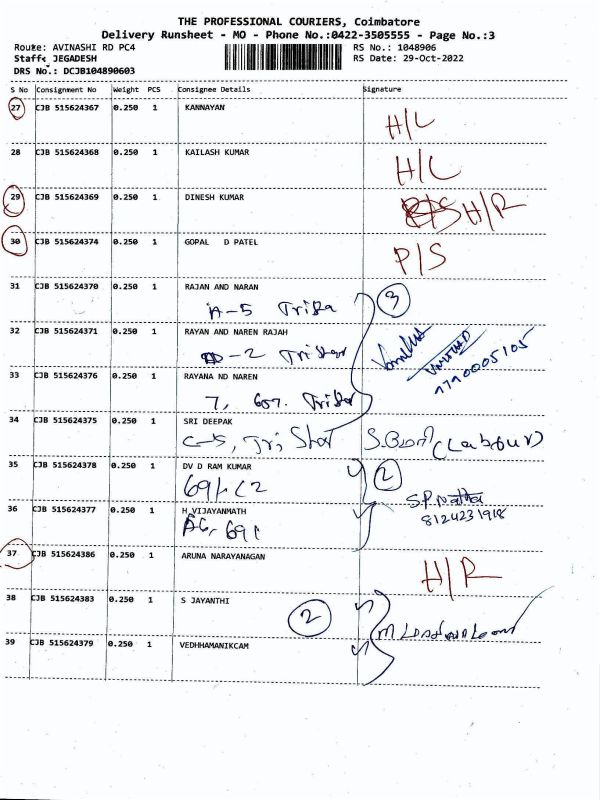 THE PROFESSIONAL COURIERS, Coimbatore
Delivery Runsheet - MO - Phone No.:0422-3505555 - Page No.:3
Route: AVINASHI RD PC4 RS No.: 1048906
Staff: JEGADESH RS Date: 29-Oct-2022
DRS No.: DCJB104890603
S No Consignment No Weight PCS Consignee Details Signature
27 CJB 515624367 0.250 1 KANNAYAN
H/L
28 CJB 515624368 0.250 1 KAILASH KUMAR
H/L
29 CJB 515624369 0.250 1 DINESH KUMAR
H/R
30 CJB 515624374 0.250 1 GOPAL D PATEL
P/S
31 CJB 515624370 0.250 1 RAJAN AND NARAN
3
A-5
32 CJB 515624371 0.250 1 RAYAN AND NAREN RAJAH
-2
33 CJB 515624376 0.250 1 RAYANA ND NAREN
7,
34 CJB 515624375 0.250 1 SRI DEEPAK
C-5, Tri, Star (Labour)
35 CJB 515624378 0.250 1 DV D RAM KUMAR
2
36 CJB 515624377 0.250 1 H VIJAYANMATH
8124231918
37 CJB 515624386 0.250 1 ARUNA NARAYANAGAN
H/R
38 CJB 515624383 0.250 1 S JAYANTHI
2
39 CJB 515624379 0.250 1 VEDHHAMANIKCAM